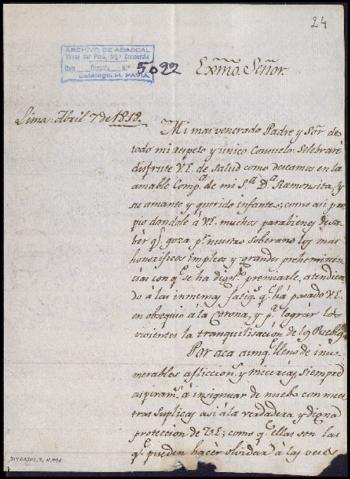 24
ARCHIVO DE ABASCAL
5022
Exmo. Señor.
Lima, Abril 7 de 1818.
Mi mas venerado Padre y Sor. de
todo mi respeto y único Consuelo: Celebraré
disfrute V.E. de Salud como deseamos en la
amable Compa. de mi Sa. Da. Ramonsita, y
su amante y querido infante, como asi pro
pio dandole á V.E. muchos parabienes de sa
ber qe. goza pr. nuestro Soberano los mas
honorificos Empleos y grandes preheminen
cias con qe. se ha dignado premiarle, atendien
do á las inmensas fatigas qe. há pasado V.E.
en obsequio á la Corona, y pa. lograr los
vivientes la tranquilisacion de los Pueblos.
Por aca aunqe. llenos de inu
merables aflicciones y miserias, siempre
aspiramos á insignuar de nuebo con nues
tras Suplicas asi á la verdadera y digna
proteccion de V.E; como qe. ellas son las
qe. pueden hacer olvidar á las veces